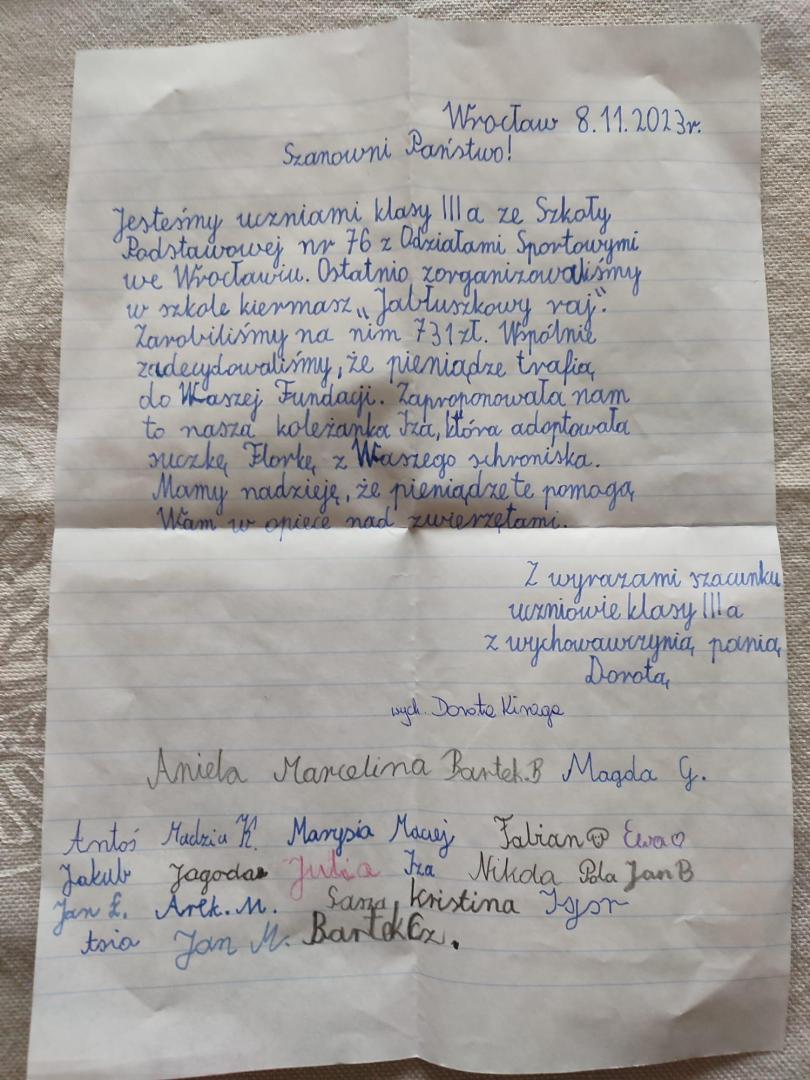 Wrocław 8.11.2023r.
Szanowni Państwo!
Jesteśmy uczniami klasy III a ze Szkoły
Podstawowej nr 76 z Odziałami Sportowymi
we Wrocławiu. Ostatnio zorganizowaliśmy
w szkole kiermasz „Jabłuszkowy raj".
Zarobiliśmy na nim 731 zł. Wspólnie
zadecydowaliśmy, że pieniądze trafią
do Waszej Fundacji. Zaproponowała nam
to nasza koleżanka Iza, która adoptowała
suczkę Florkę z Waszego schroniska.
Mamy nadzieję, że pieniądze te pomogą
Wam w opiece nad zwierzętami.
Z wyrazami szacunku
uczniowie klasy III a
z wychowawczynią panią
Dorotą
wych. Dorota
Aniela Marcelina Bartek.B Magda G.
Antoś Madzia K. Marysia Maciej Fabian Ewa♡
Jakub Jagoda Julia Iza Nikola Pola Jan B
Jan Ł. Arek. M. Kristina Igor
Asia Jan M. Bartek Cz.